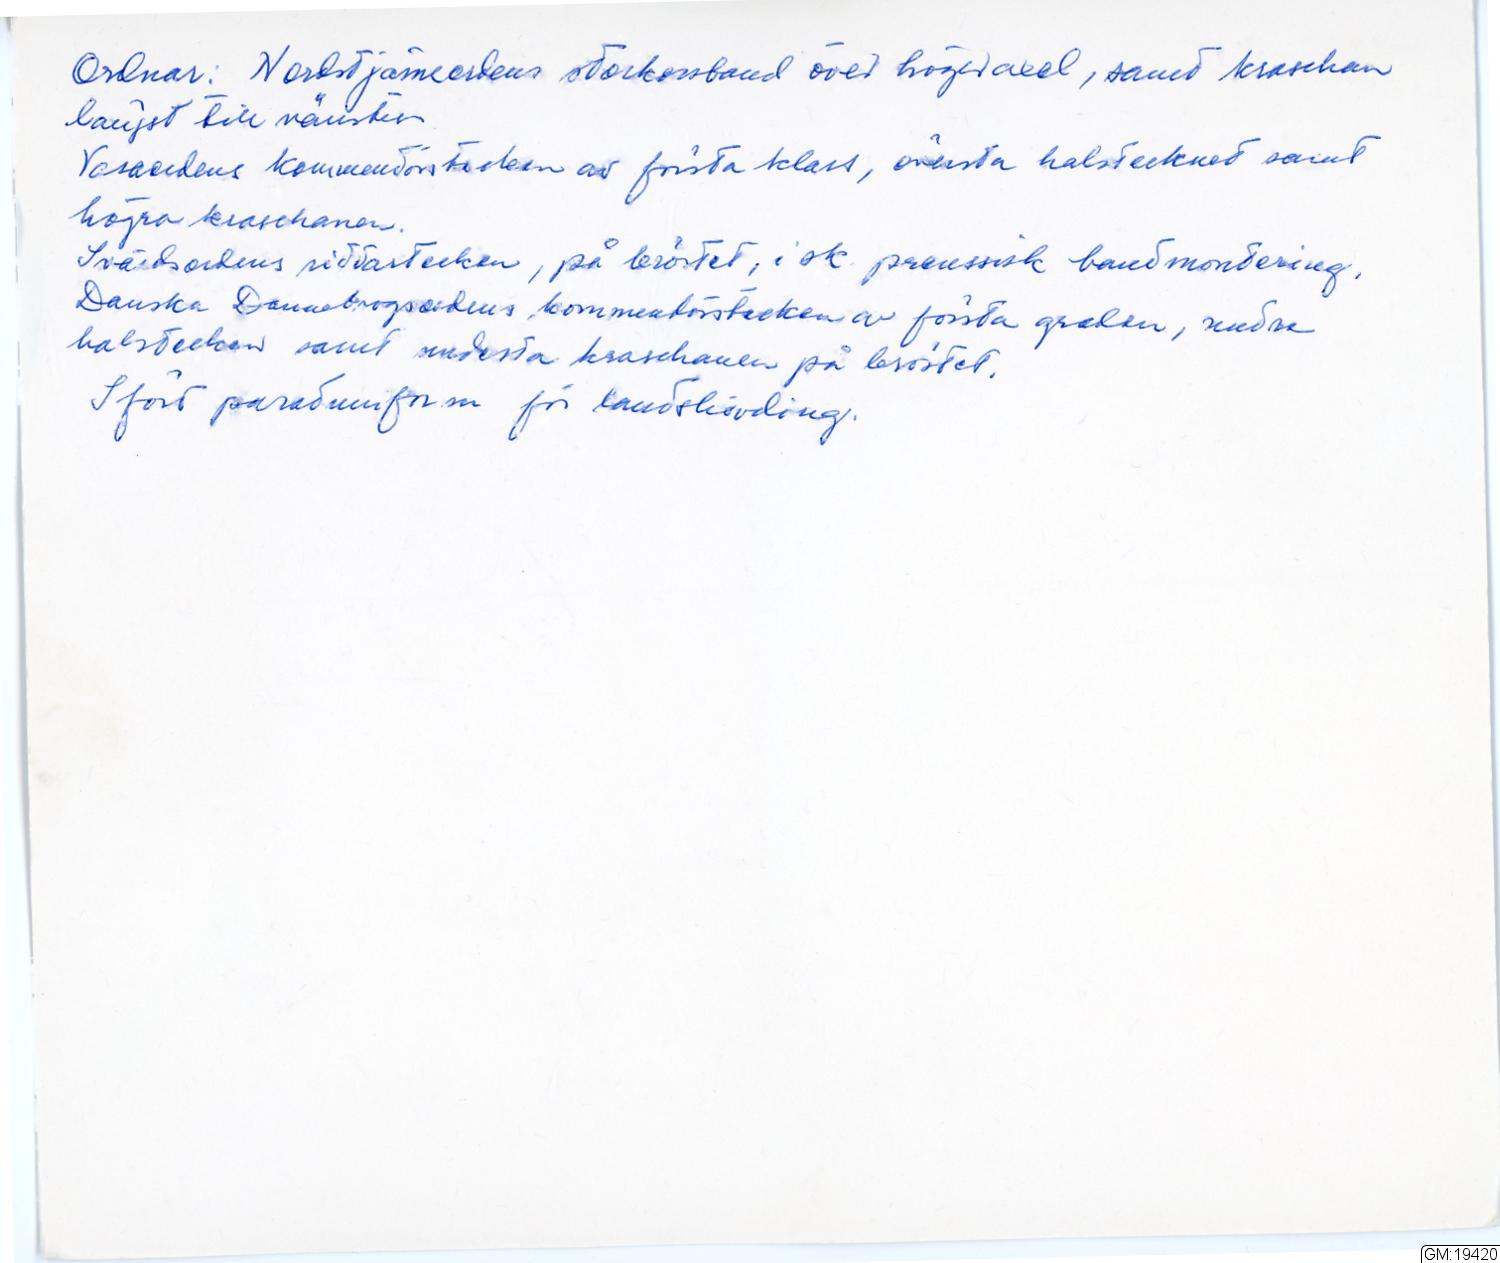 Ordnar: Nordstjärneordens storkorsband över höger axel, samt kraschan
längst till vänster
Vasaordens kommendörstecken av första klass, översta halstecknet samt
högra kraschanen.
Svärdsordens riddartecken, på bröstet, i sk. preussisk bandmontering.
Danska Dannebrogsordens kommendörstecken av första graden, nedre
halstecken samt nedersta kraschanen på bröstet.
Iförd paraduniform för landshövding.
GM:19420